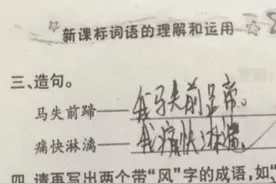 新课标词语的理解和运用
三、造句。
马失前蹄——我马失前足帝。
痛快淋漓——我痛快淋漓。
四 请再写出两个带“风”字的成语，如、